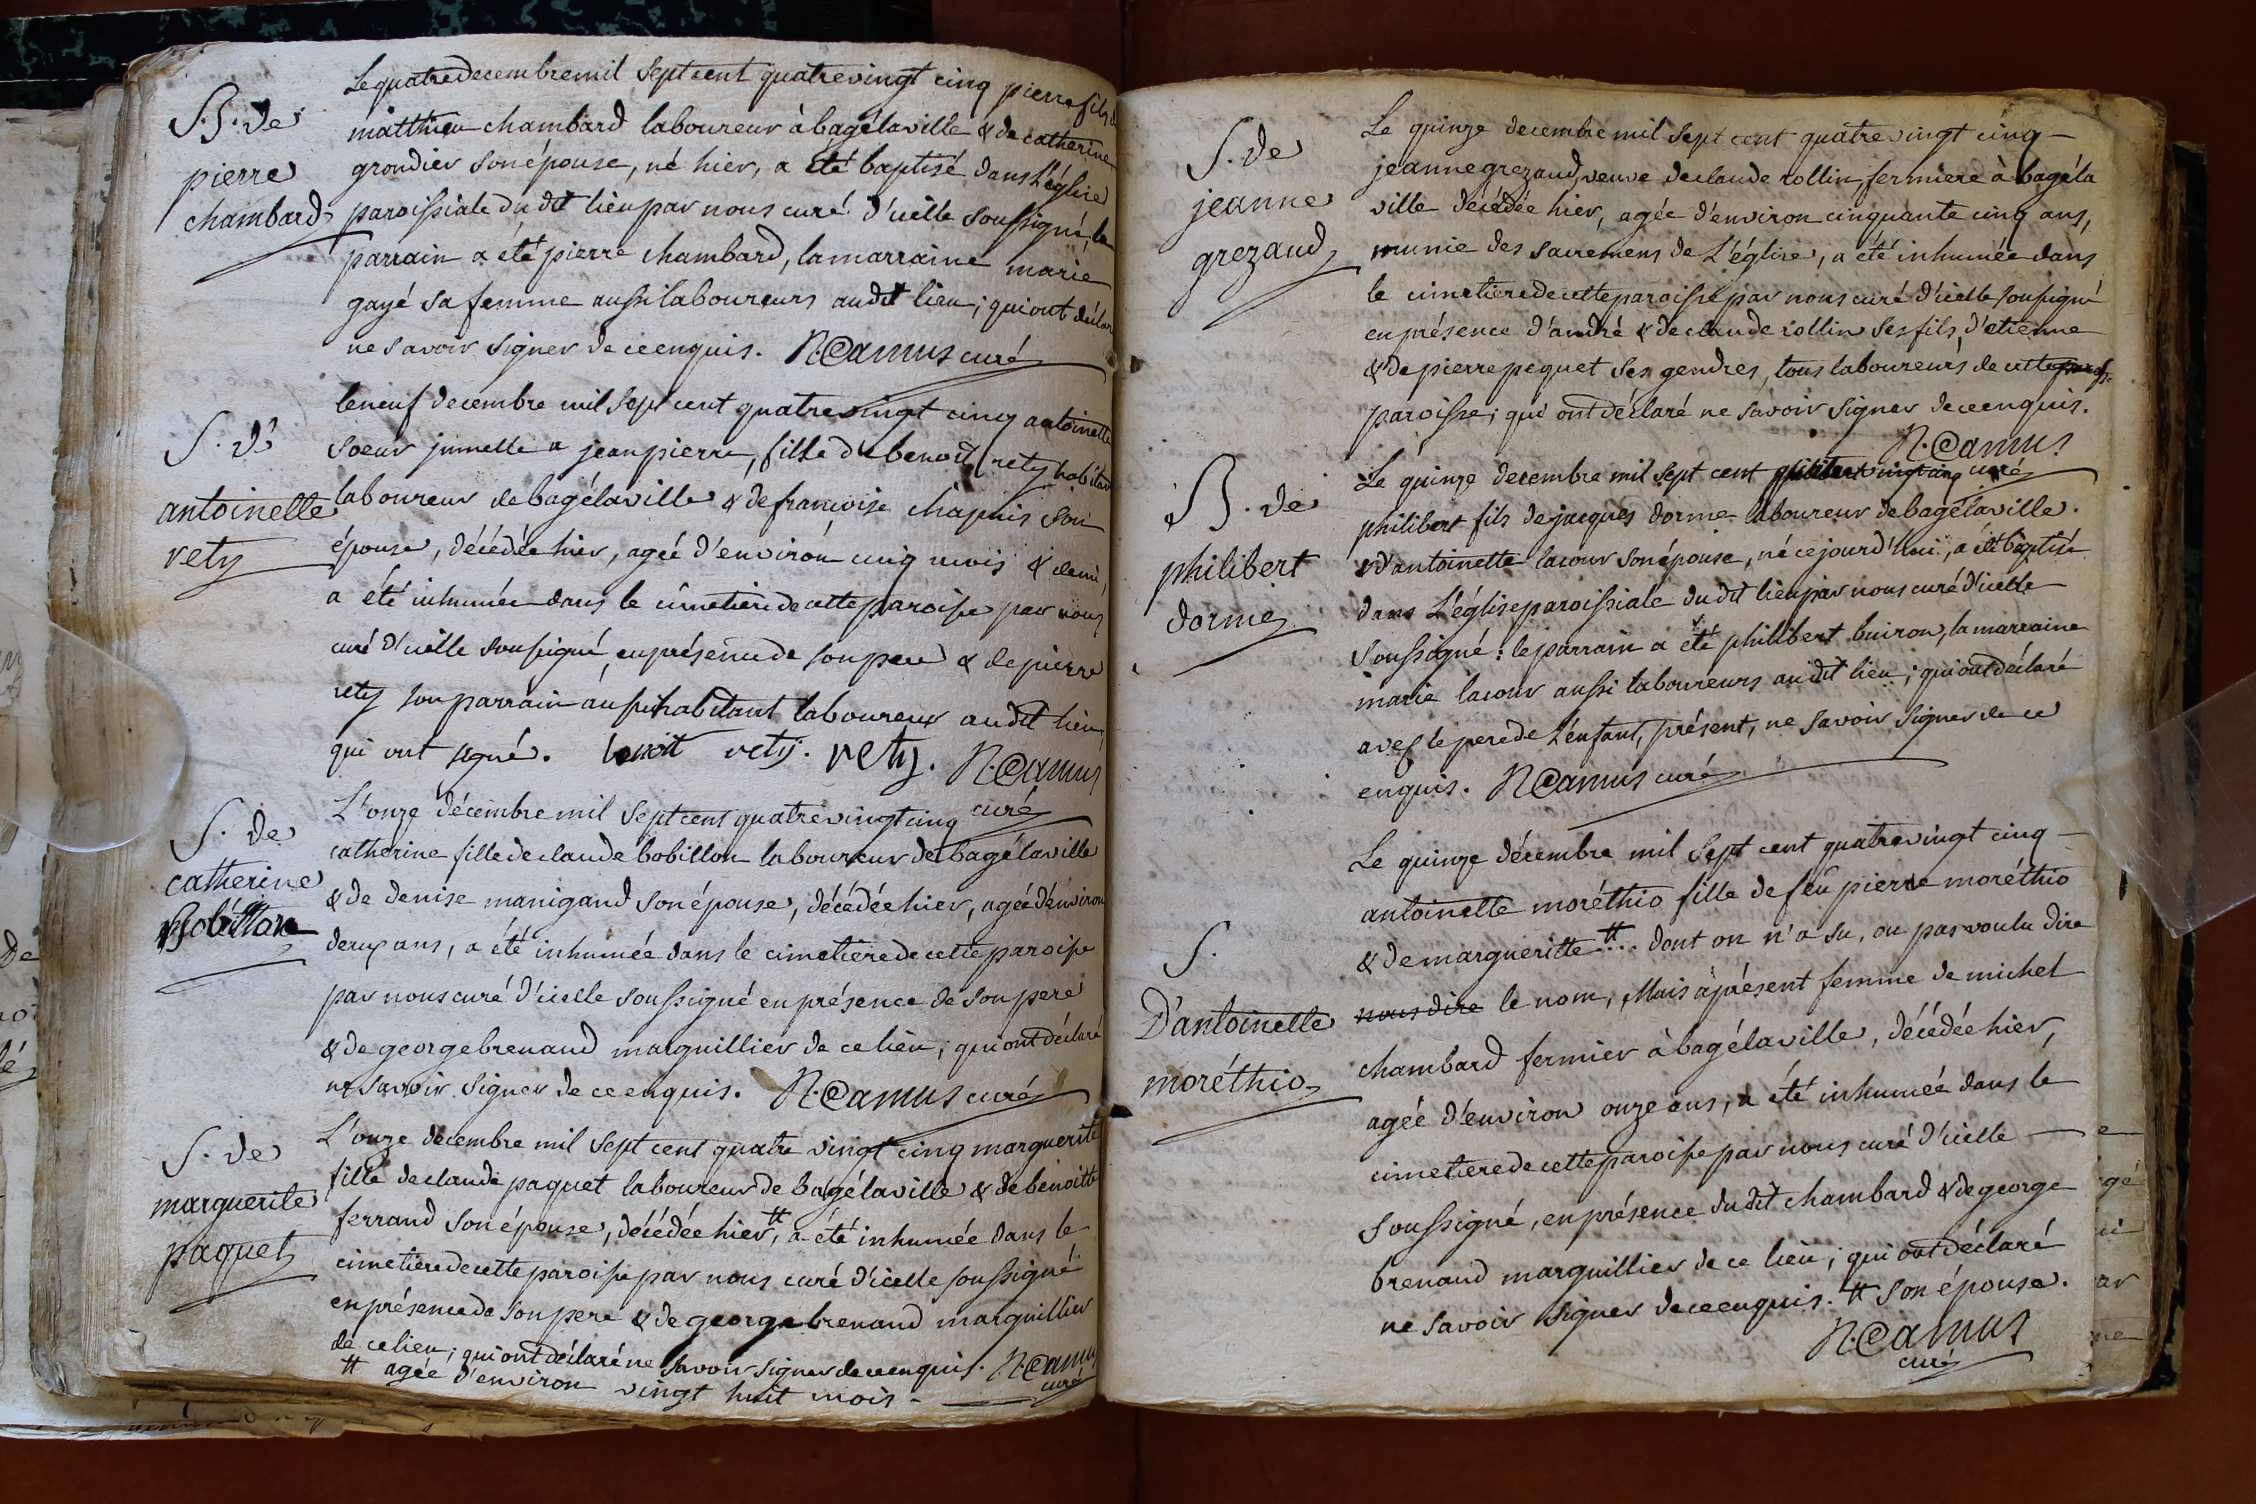 B. de
pierre
chambard
Le quatre decembre mil sept cent quatre vingt cinq pierre fils de
matthieu chambard laboureur à bagélaville & de catherine
grondier son épouse, né hier, a été baptisé dans l'église
paroissiale du dit lieu par nous curé d'icelle soussigné, le
parrain a été pierre chambard, la marraine marie
gayé sa femme aussi laboureurs audit lieu; qui ont déclaré
ne savoir signer de ce enquis. N. Camus curé
S. d'
antoinette
rety
le neuf decembre mil sept cent quatre vingt cinq antoinette
soeur jumelle a jean pierre, fille de benoit rety habitant
laboureur de bagélaville & de francoise chapuis son
épouse, décédée hier, agée d'environ cinq mois & demi,
a été inhumée dans le cimetiere de cette paroisse par nous
curé d'icelle soussigné en présence de son pere & de pierre
rety son parrain aussi habitant laboureur audit lieu,
qui ont signé. benoit rety. rety. N. Camus
curé
S. de
catherine
Bobillon
L'onze décembre mil sept cent quatre vingt cinq
catherine fille de claude bobillon laboureur de bagélaville
& de denise manigand son épouse, décédée hier, agée d'environ
deux ans, a été inhumée dans le cimetiere de cette paroisse
par nous curé d'icelle soussigné en présence de son pere
& de george brenaud marguillier de ce lieu; qui ont déclaré
ne savoir signer de ce enquis. N. Camus curé
S. de
marguerite
paquet
L'onze decembre mil sept cent quatre vingt cinq marguerite
fille de claude paquet laboureur de bagélaville & de benoitte
ferrand son épouse, décédée hier, # a été inhumée dans le
cimetiere de cette paroisse par nous curé d'icelle soussigné
en présence de son pere & de george brenaud marguillier
de ce lieu; qui ont déclaré ne savoir signer de ce enquis. N. Camus
curé
# agée d'environ vingt huit mois -
S. de
jeanne
grezaud
Le quinze decembre mil sept cent quatre vingt cinq -
jeanne grezaud, veuve de claude rollin, fermiere à bagéla
ville décédée hier, agée d'environ cinquante cinq ans,
munie des sacremens de L'église, a été inhumée dans
le cimetiere de cette paroisse par nous curé d'icelle soussigné
en présence d'andré & de claude rollin ses fils, d'etienne
& de pierre pequet ses gendres, tous laboureurs de cette
paroisse; qui ont déclaré ne savoir signer de ce enquis.
N. Camus
curé
B. de
philibert
dorme
Le quinze decembre mil sept cent quatre vingt cinq
philibert fils de jacques dorme laboureur de bagélaville.
& d'antoinette lacour son épouse, né ce jourd'hui, a été baptisé
dans L'église paroissiale du dit lieu par nous curé d'icelle
soussigné: le parrain a été philibert buiron, la marraine
marie lacour aussi laboureurs audit lieu; qui ont déclaré
avec le pere de L'enfant, présent, ne savoir signer de ce
enquis. N. Camus curé
S.
D'antoinette
moréthio
Le quinze décembre mil sept cent quatre vingt cinq -
antoinette moréthio fille de feû pierre moréthio
& de margueritte #... dont on n'a su, ou pas voulu dire
nous dire le nom, Mais à présent femme de michel
chambard fermier à bagélaville, décédée hier,
agée d'environ onze ans, a été inhumée dans le
cimetiere de cette paroisse par nous curé d'icelle
soussigné, en présence du dit chambard & de george
brenaud marguillier de ce lieu; qui ont déclaré
ne savoir signer de ce enquis. # son épouse.
N. Camus
curé